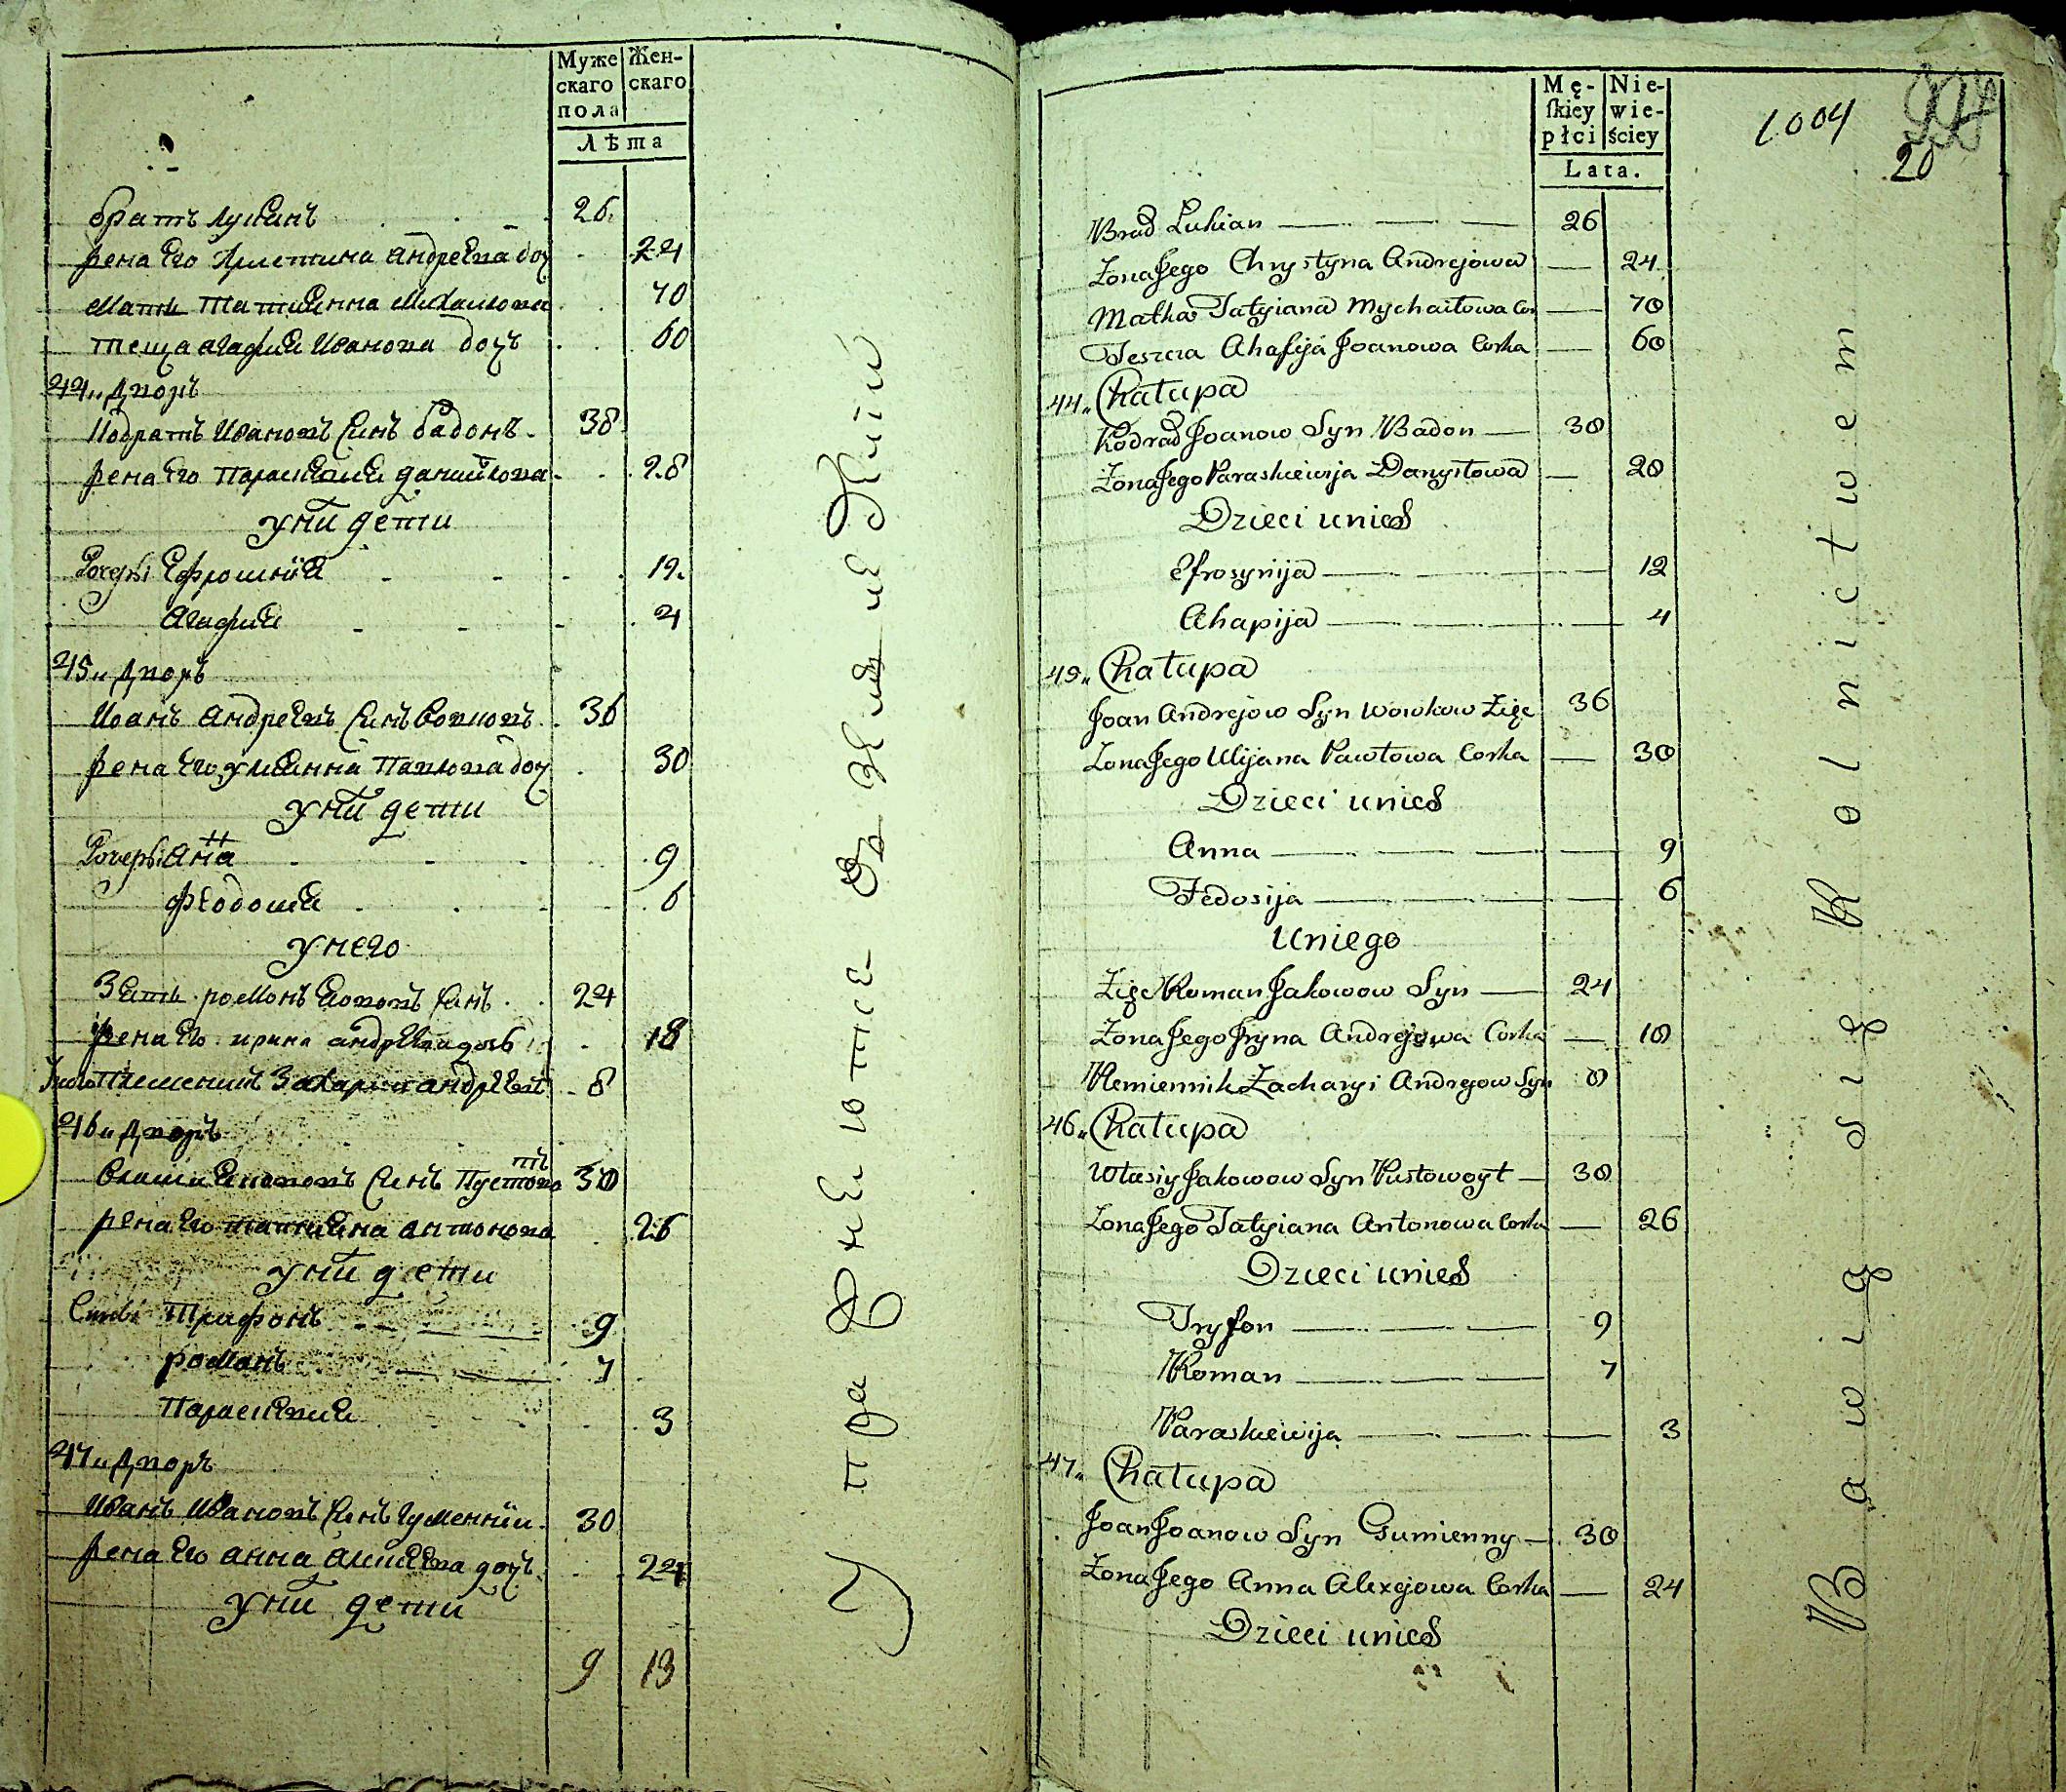 Муже Жен-
скаго скаго
пола
Лѣта
братъ Лукіянъ 26
жена Его Христина андреева доч 24
Мати татиянна Михаилова 70
теща агафия Иванова дочь 60
44 Дворъ
Кодратъ Ивановъ Синъ бадонъ 38
жена Его Параскевия данийлова 28
у них дети
Дочери Ефросиния 12
Агафия 4
45 Дворъ
Иоанъ андреевъ Синъ вовковъ 36
жена Его улиянна Павлова доч 30
у них дети
Дочери Анна 9
феодосия 6
у него
Зять роман яковов Синъ 24
жена Его ирина андреева дочь 18
племенник Захария андреевъ 8
46 Дворъ
власий яковов Синъ Пустовойтъ 30
жена Его татияна антонова 26
у них дети
Сыны Трифонъ 9
роман 7
Параскевия 3
47 Дворъ
Иванъ Ивановъ Синъ гуменний 30
жена Его анна алексеева дочъ 24
у них дети
9 13
Mę- Nie-
ſkiey wie-
płci ściey
Lata.
1004
20
Brad Lukian 26
Zona Jego Chrystyna Andrejowa 24
Matka Tatyiana Mychaiłowa Cor 70
Teszcza Ahafija Joanowa Corka 60
44. Chałupa
Kodrad Joanow Syn Badon 38
Zona Jego Paraskiewija Danyłowa 28
Dzieci unich
Efrosynija 12
Ahapija 4
45. Chałupa
Joan Andrejow Syn Wowkow Zięc 36
Zona Jego Ulijana Pawłowa Corka 30
Dzieci unich
Anna 9
Fedosija 6
Uniego
Zięc Roman Jakowow Syn 24
Zona Jego Jryna Andrejowa Corka 18
Plemiennik Zacharyi Andrejow Syn 8
46. Chałupa
Własiy Jakowow Syn Pustowoyt 30
Zona Jego Tatyiana Antonowa Corka 26
Dzieci unich
Tryfon 9
Roman 7
Paraskiewija 3
47. Chałupa
Joan Joanow Syn Gumienny 30
Zona Jego Anna Alexejowa Corka 24
Dzieci unich
Bawią się Rolnictwem